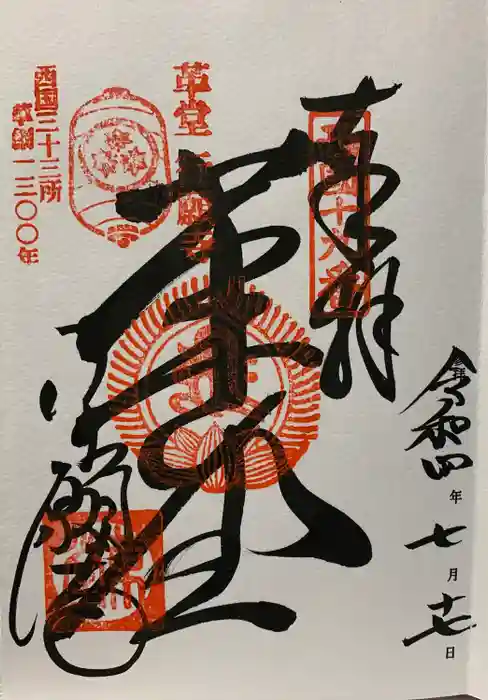 奉拝
西国十九番
革堂 行願寺
西国三十三所
草創一三〇〇年
革堂
行願寺
令和四年七月十七日